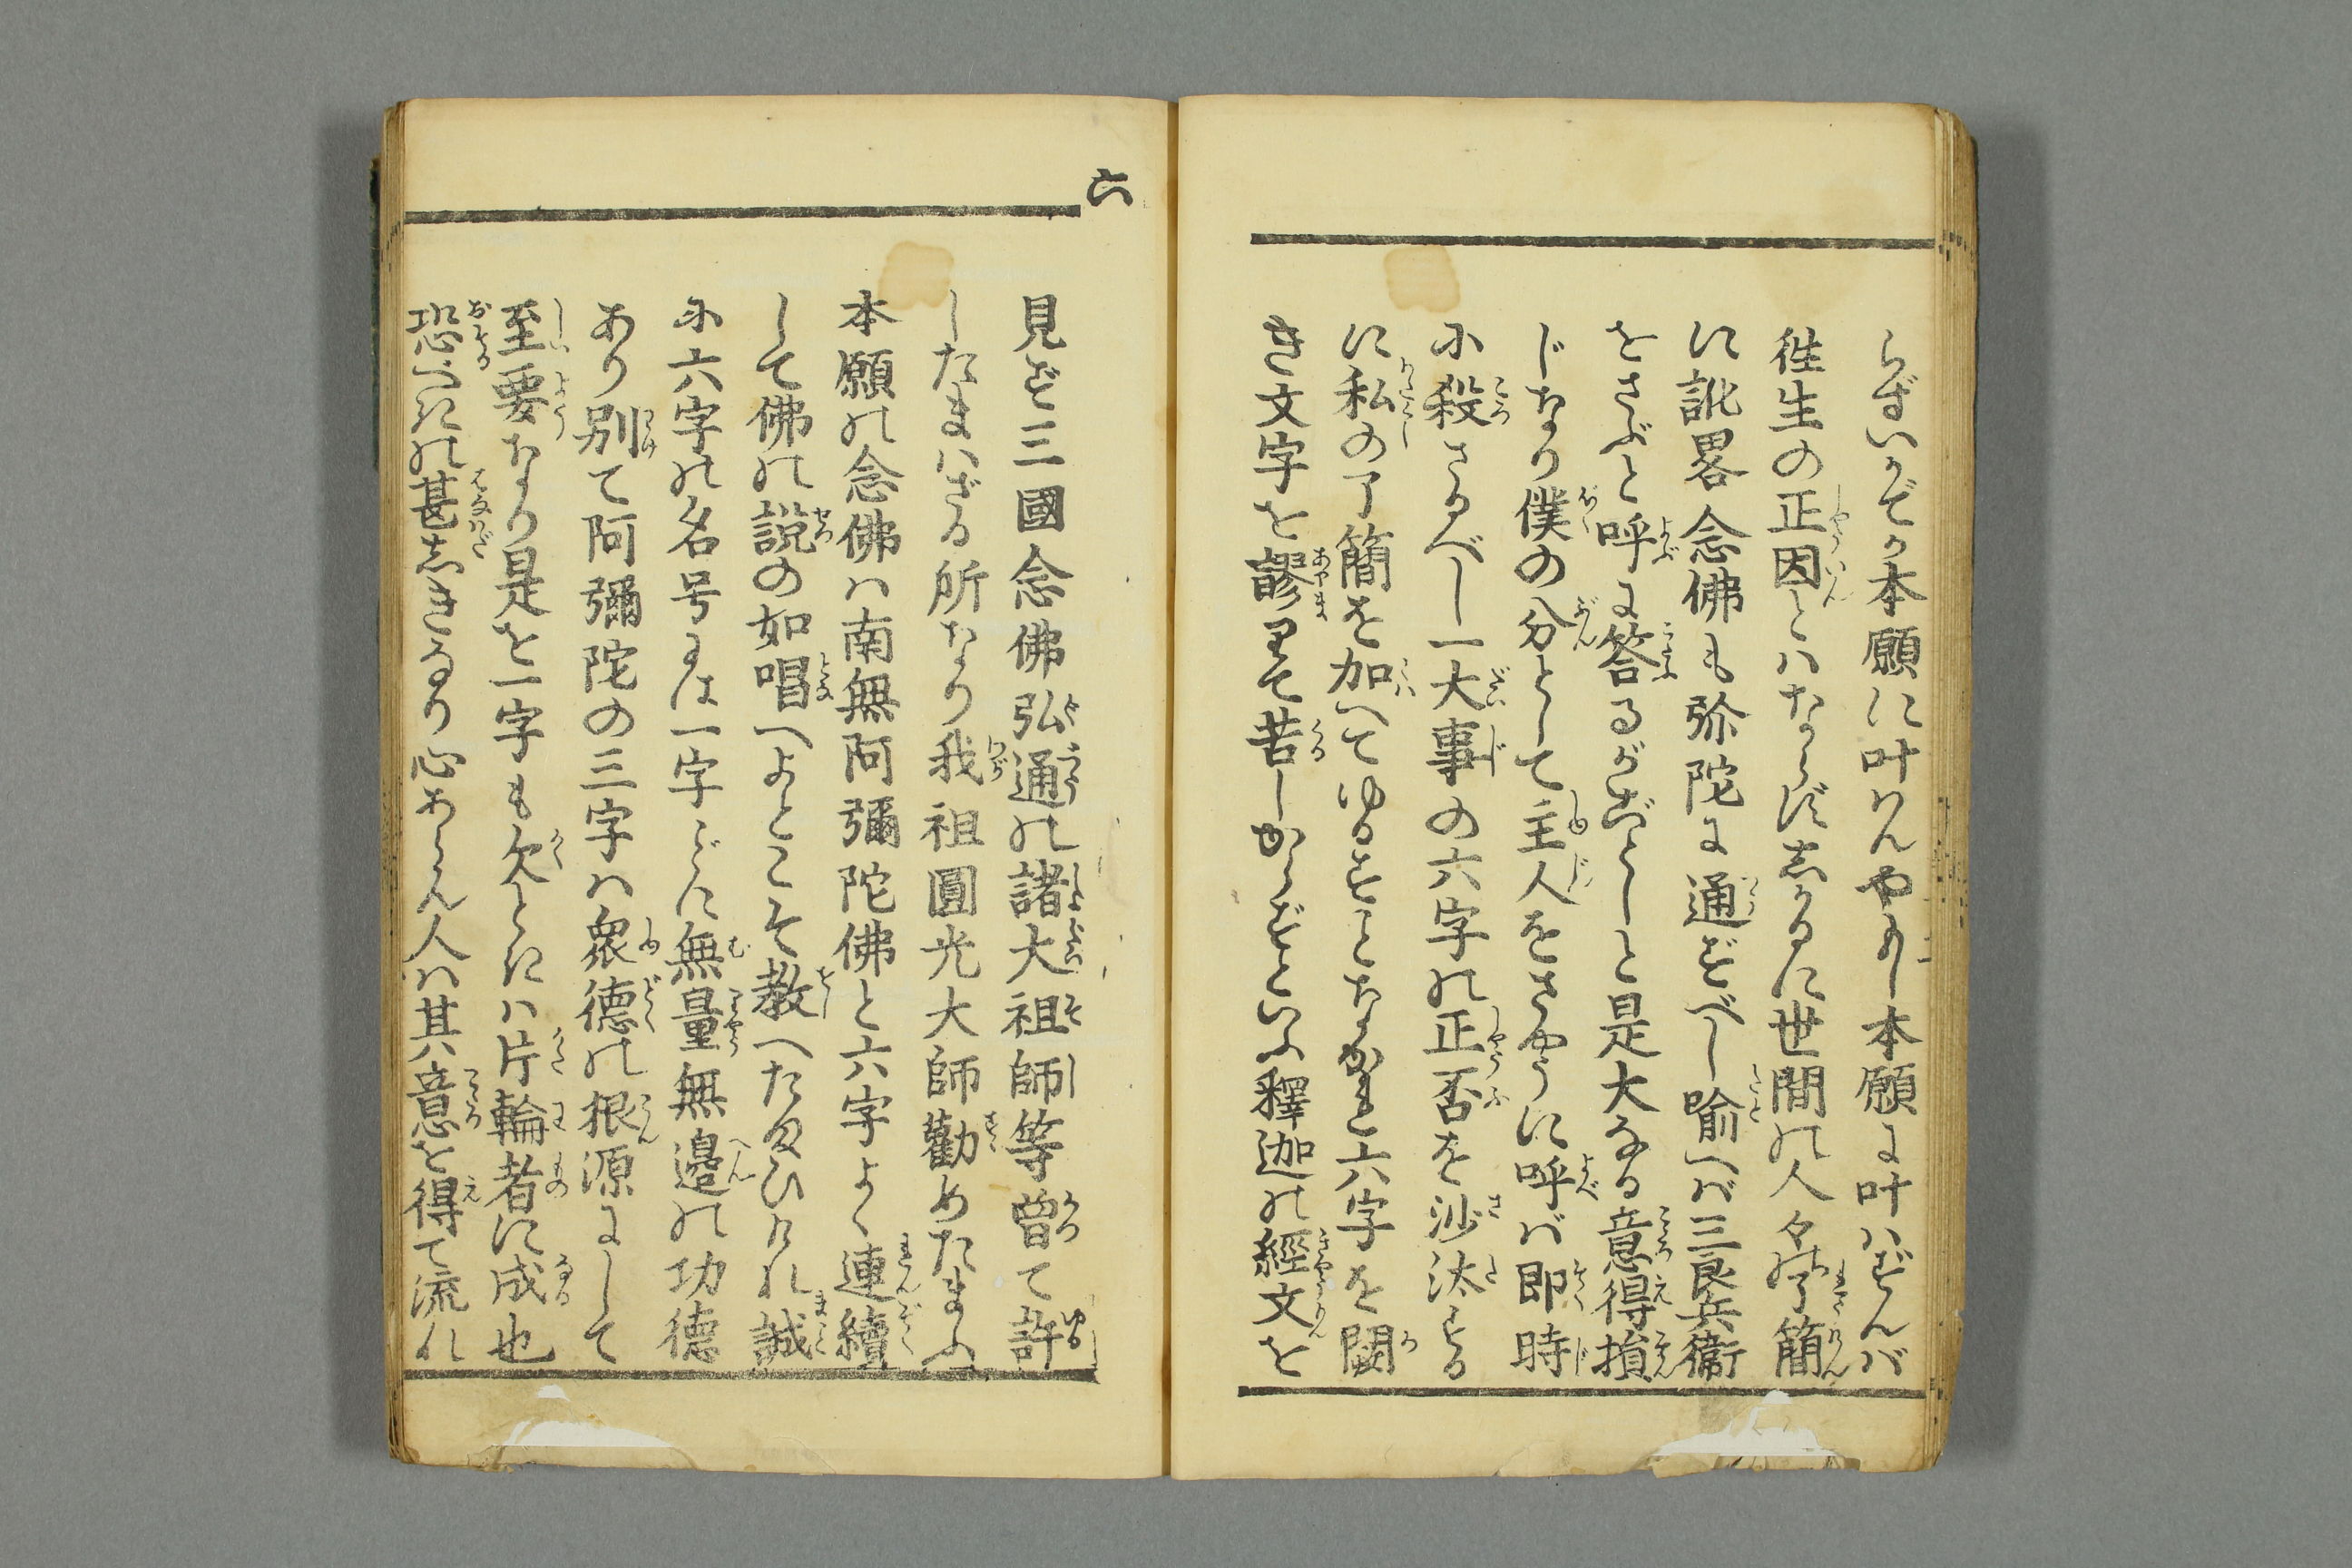 らずいかでか本願に叶はんやもし本願に叶はずんば
往生の正因とはならずしかるに世間の人々了簡
に訛畧念佛も弥陀に通ずべし喩へば三良兵衛
をさぶと呼に答るがごとしと是大なる意得損
じなり僕の分として主人をさやうに呼ば即時
に殺さるべし一大事の六字の正否を沙汰する
に私の了簡を加へてゆるすことなかれと六字を闕
き文字を謬りて苦しからずといふ釋迦の經文を
六
見ず三國念佛弘通の諸大祖師等曽て許
したまはざる所なり我祖圓光大師勸めたまふ
本願の念佛は南無阿彌陀佛と六字よく連續
して佛の説の如唱へよとこそ教へたまひけれ誠
に六字の名号には一字〴〵に無量無邊の功德
あり別て阿彌陀の三字は衆德の根源にして
至要なり是を一字も欠ときは片輪者に成也
恐べきの甚しきなり心あらん人は其意を得て流れ